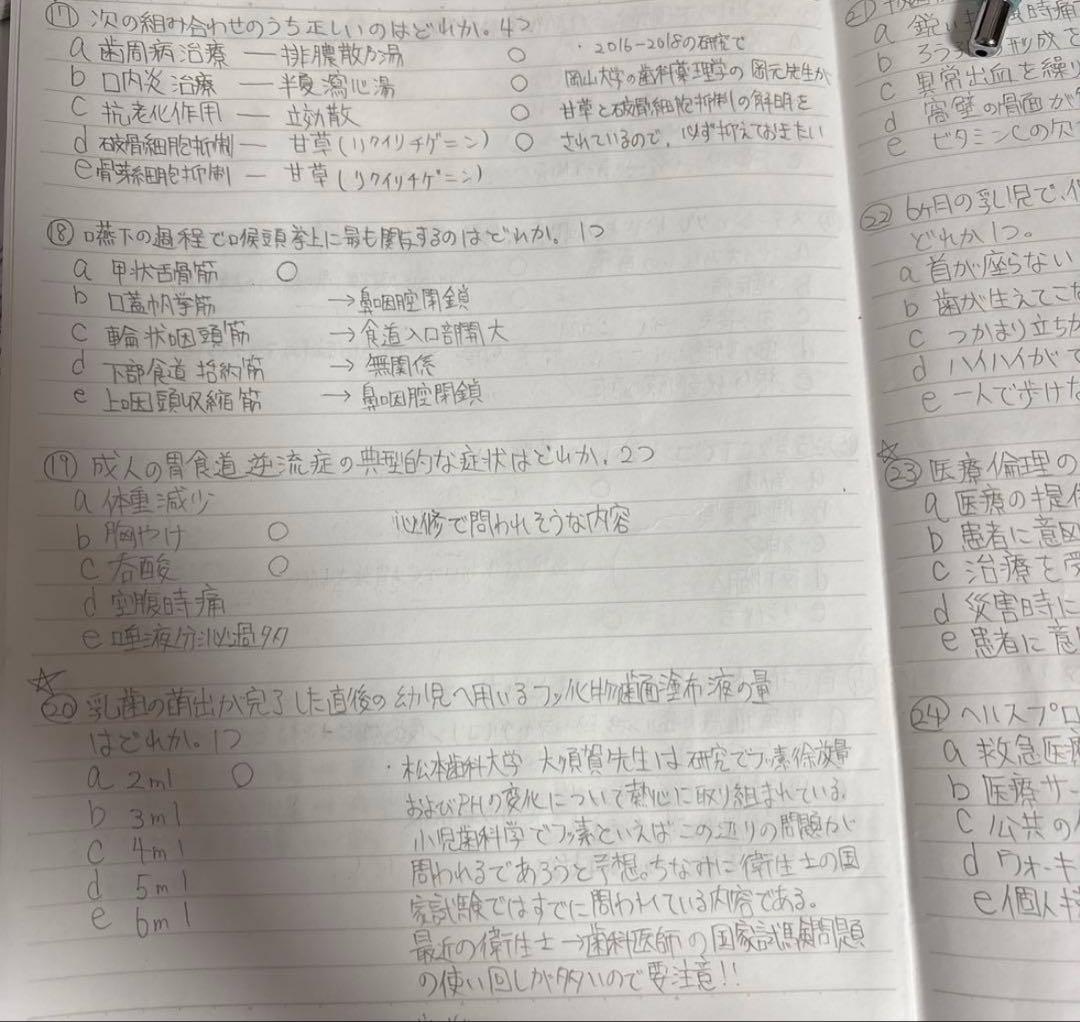 ⑰ 次の組み合わせのうち正しいのはどれか。4つ
a 歯周病治療 ― 排膿散乃湯 ○
b 口内炎治療 ― 半夏瀉心湯 ○
c 抗老化作用 ― 立効散 ○
d 破骨細胞抑制 ― 甘草(リクイリチゲニン) ○
e 骨芽細胞抑制 ― 甘草(リクイリチゲニン)
・2016-2018の研究で
岡山大学の歯科薬理学の岡元先生が
甘草と破骨細胞抑制の解明を
されているので、必ず抑えておきたい
⑱ 嚥下の過程で喉頭挙上に最も関与するのはどれか。1つ
a 甲状舌骨筋 ○
b 口蓋帆挙筋 →鼻咽腔閉鎖
c 輪状咽頭筋 →食道入口部開大
d 下部食道括約筋 →無関係
e 上咽頭収縮筋 →鼻咽腔閉鎖
⑲ 成人の胃食道逆流症の典型的な症状はどれか。2つ
a 体重減少
b 胸やけ ○
c 呑酸 ○
d 空腹時痛
e 唾液分泌過多
必修で問われそうな内容
☆
⑳ 乳歯の萌出が完了した直後の幼児へ用いるフッ化物歯面塗布液の量
はどれか。1つ
a 2ml ○
b 3ml
c 4ml
d 5ml
e 6ml
・松本歯科大学 大須賀先生は研究でフッ素徐放量
およびPHの変化について熱心に取り組まれている。
小児歯科学でフッ素といえばこの辺りの問題が
問われるであろうと予想。ちなみに衛生士の国
家試験ではすでに問われている内容である。
最近の衛生士→歯科医師の国家試験問題
の使い回しが多いので要注意!!
a 鋭い
b ろう 形成を
c 異常出血を繰り
d 窩壁の骨面が
e ビタミンCの欠
㉒ 6ヶ月の乳児で、
どれか1つ。
a 首が座らない
b 歯が生えてこな
c つかまり立ちが
d ハイハイがで
e 一人で歩けな
☆
㉓ 医療倫理の
a 医療の提供
b 患者に意図
c 治療を受
d 災害時に
e 患者に意
㉔ ヘルスプロ
a 救急医療
b 医療サー
c 公共の
d ウォーキ
e 個人